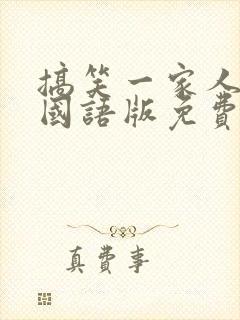 搞笑一家人
國語版免費
真費事